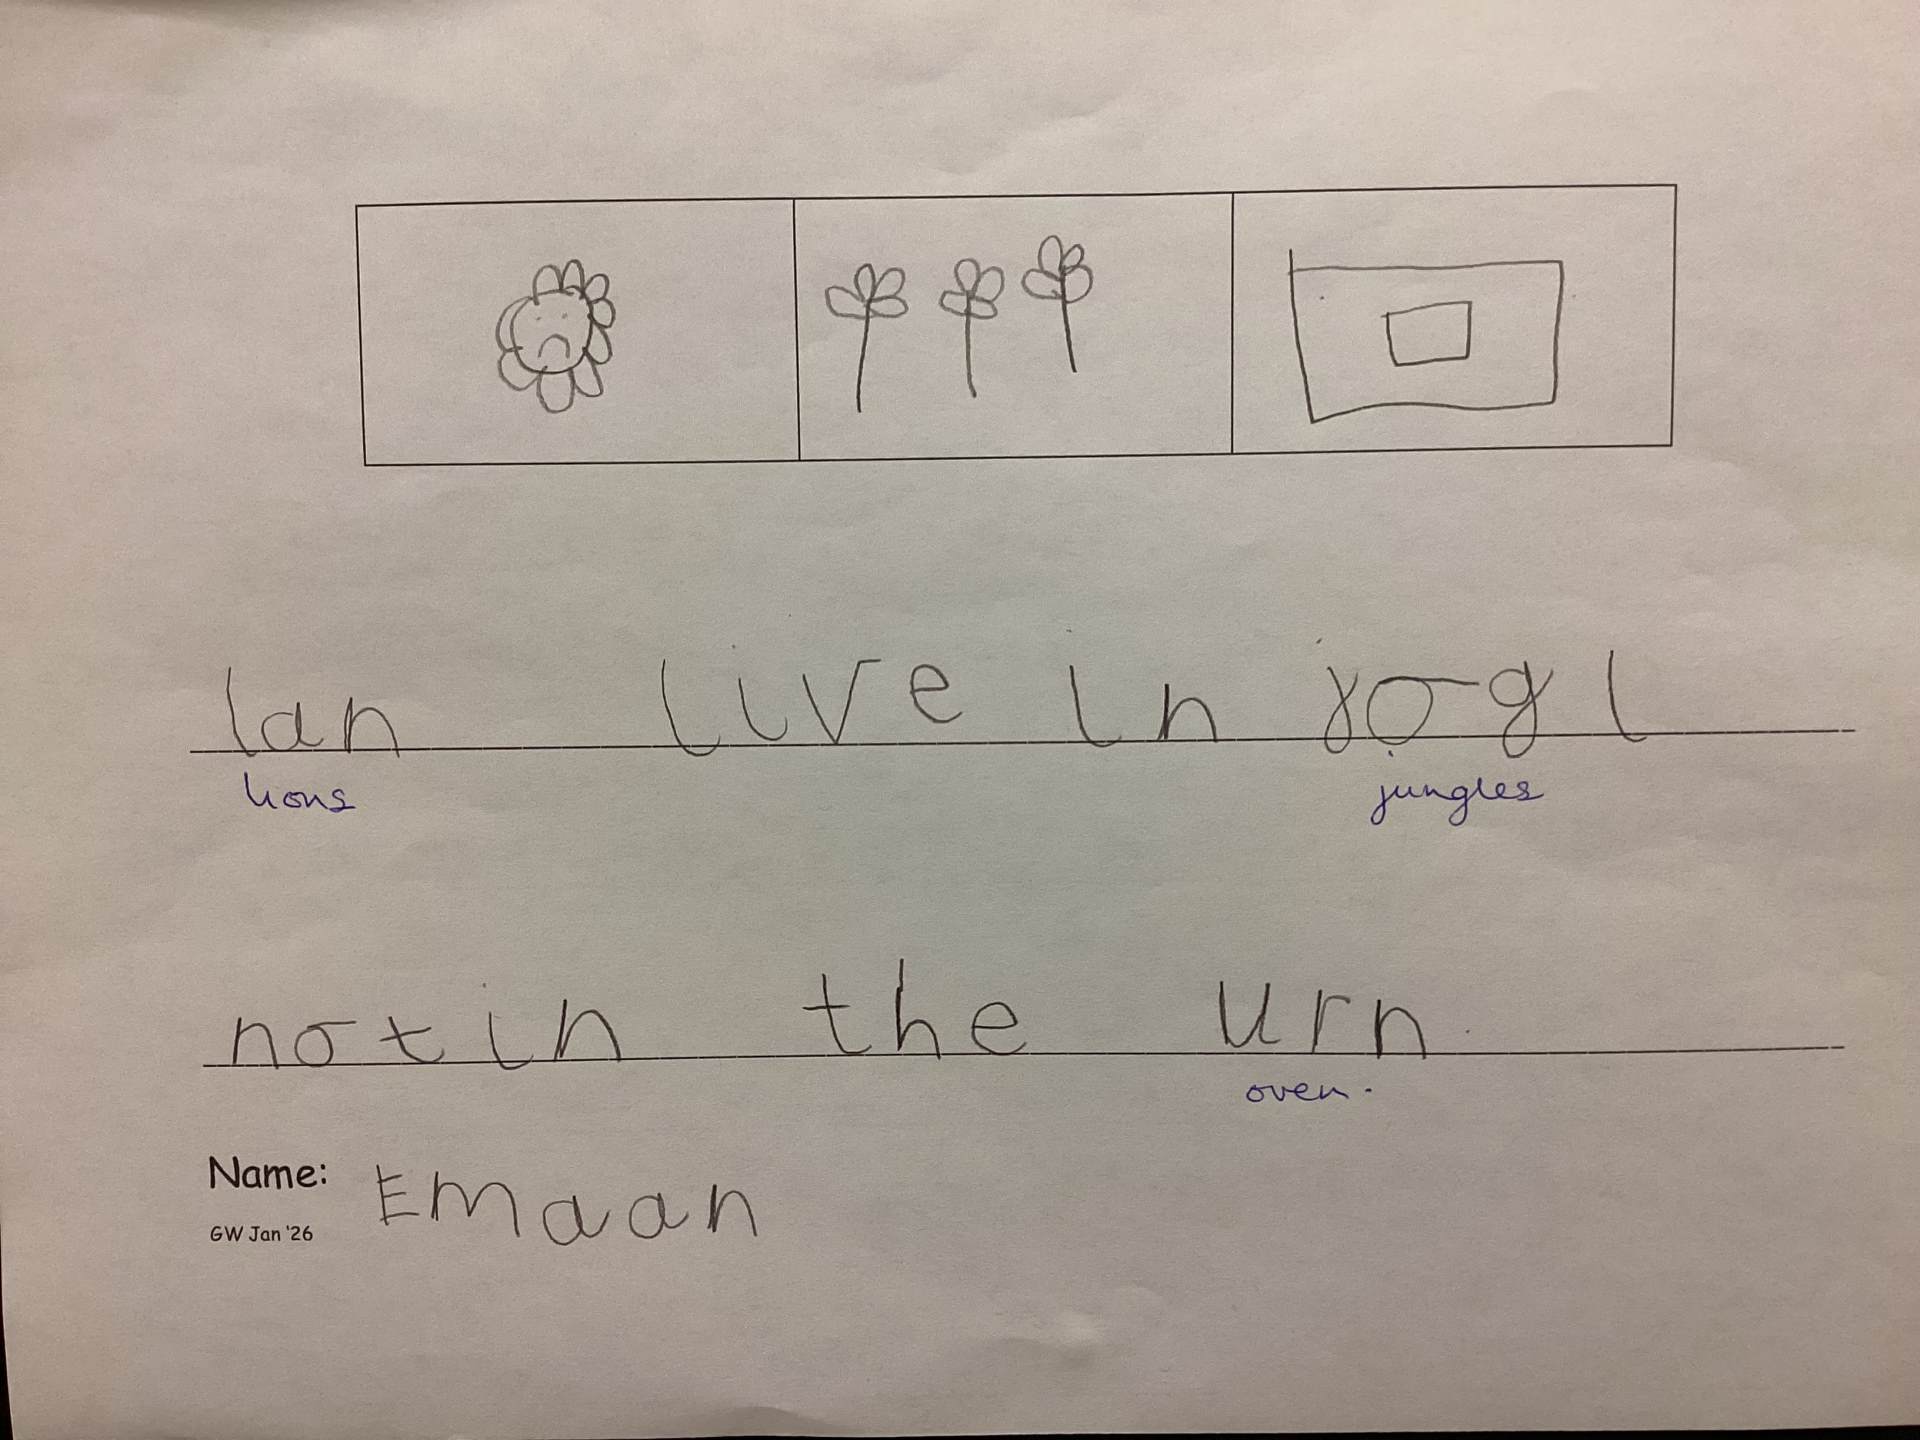 lan live in jogl
lions jungles
not in the urn
oven.
Name: Emaan
GW Jan '26